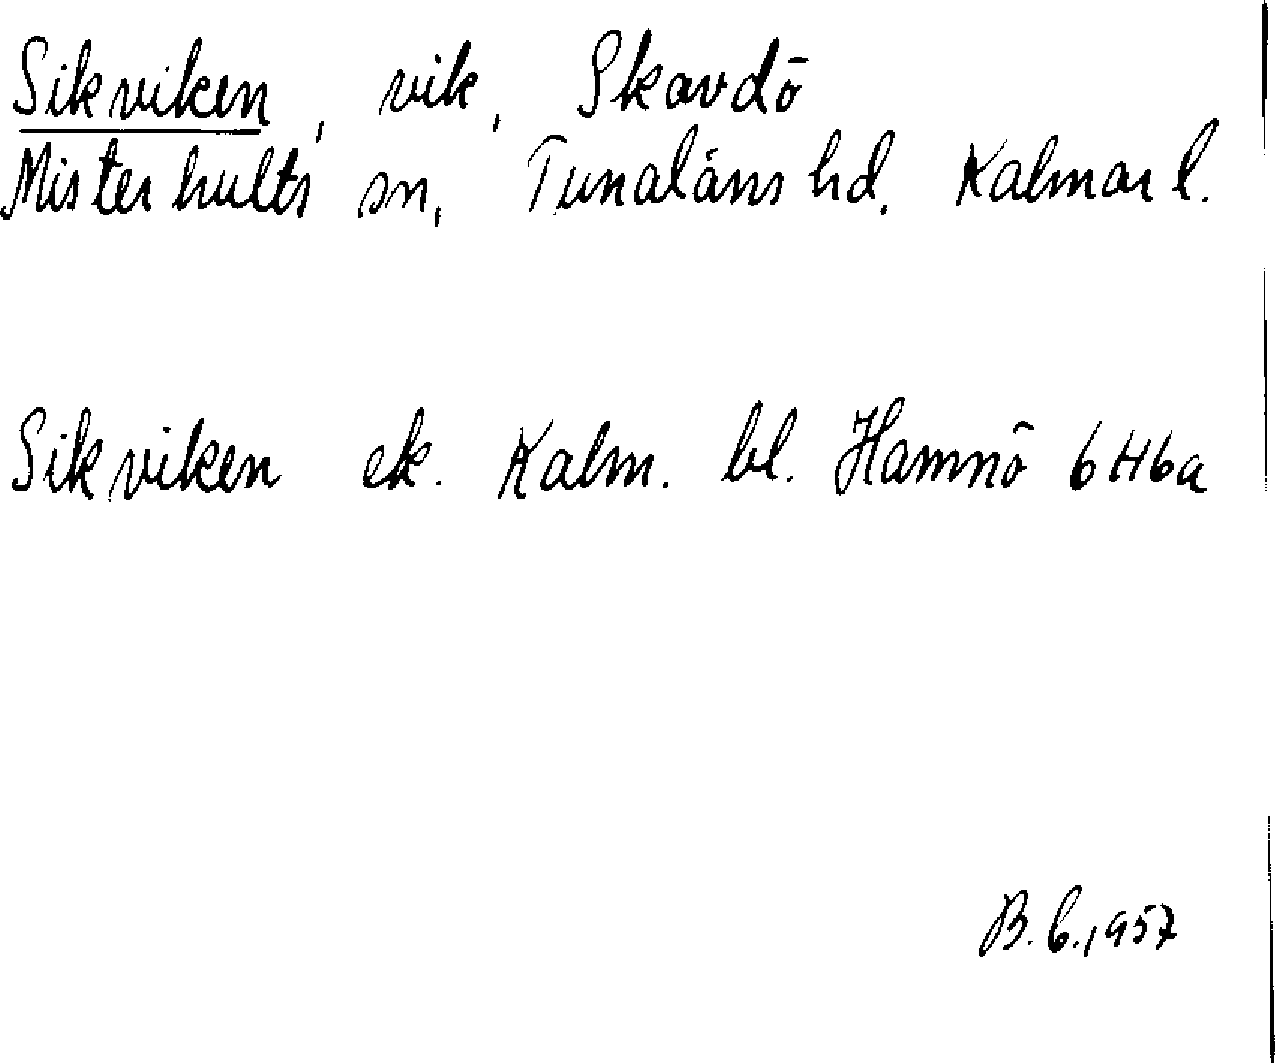 Sikviken, vik, Skavdö
Misterhults sn, Tunaläns hd. Kalmar l.
Sikviken ek. Kalm. bl. Hamnö 6H6a
B.G. 1957